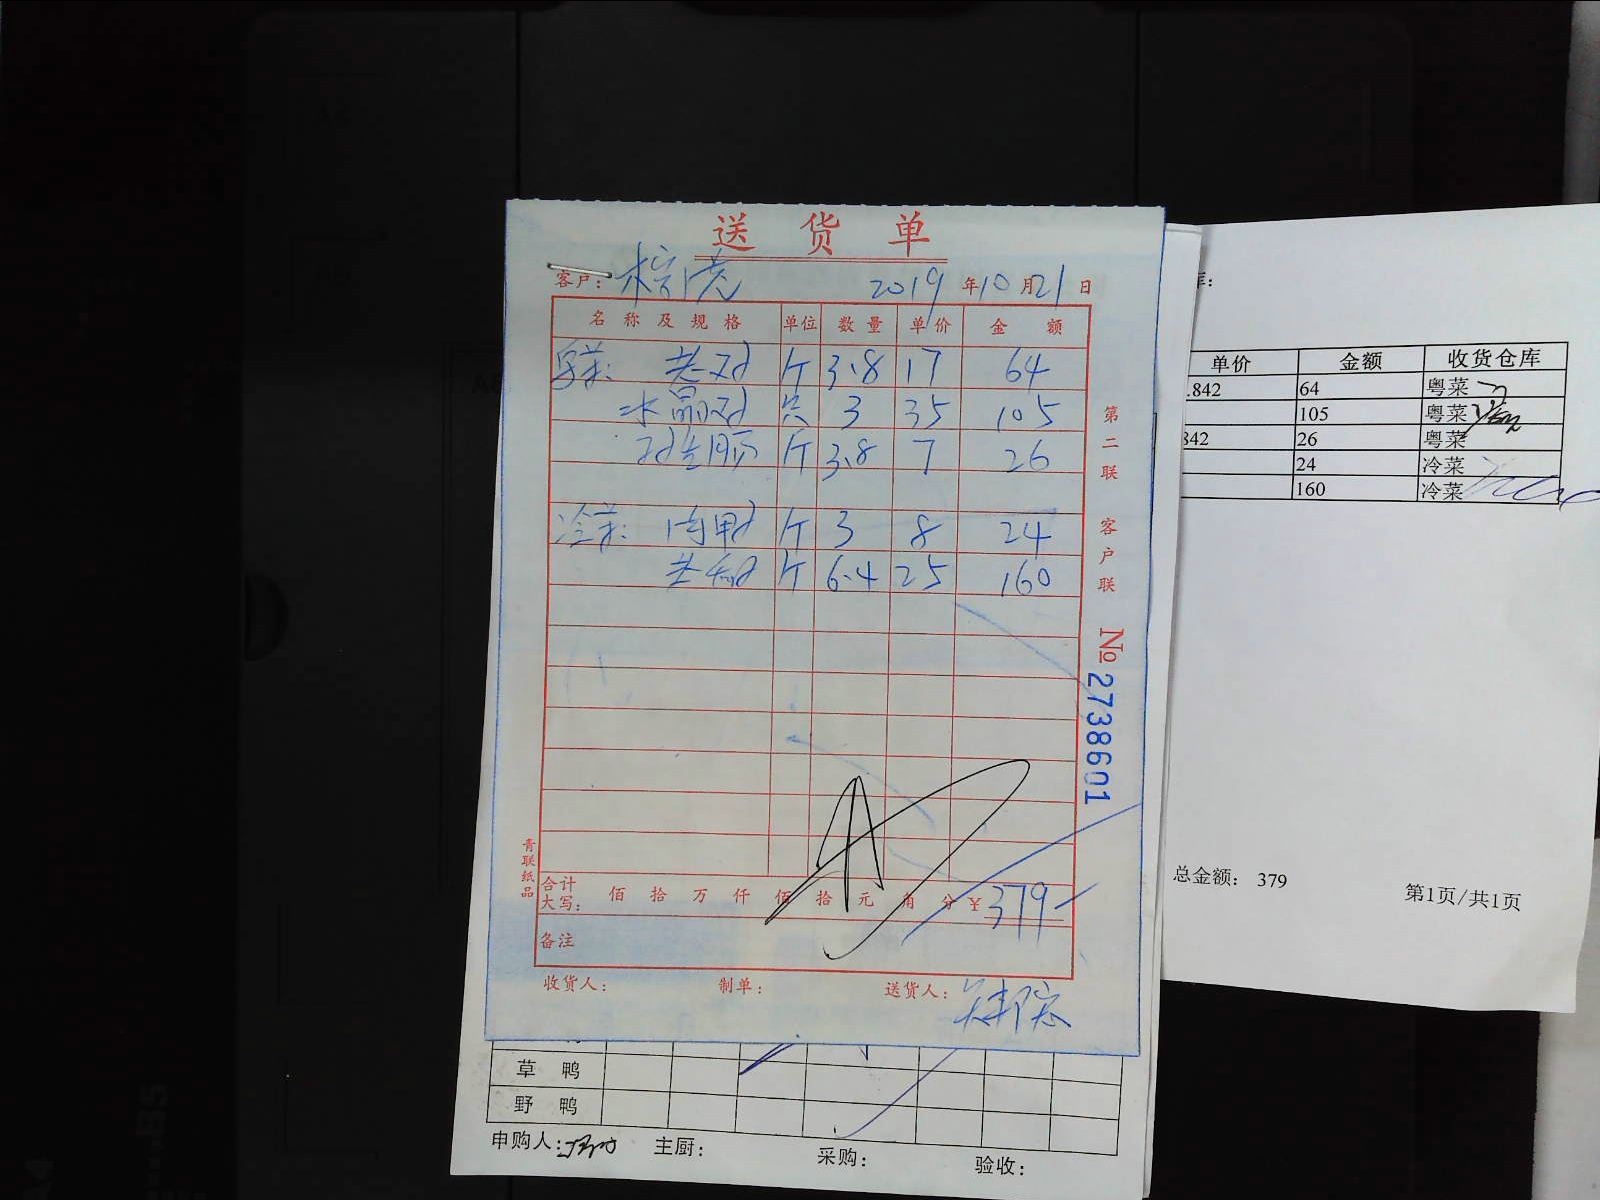 送货单
客户： 2019年10月21日
名称及规格 单位 数量 单价 金额
粤菜： 老 斤 3.8 17 64
水晶 只 3 35 105
斤 3.8 7 26
冷菜： 肉 斤 3 8 24
老 斤 6.4 25 160
第二联 客户联
№2738601
青联纸品
合计大写： 佰 拾 万 仟 佰 拾 元 角 分 ¥379
备注
收货人： 制单： 送货人：
单价 金额 收货仓库
.842 64 粤菜
105 粤菜
842 26 粤菜
24 冷菜
160 冷菜
总金额： 379
第1页/共1页
草鸭
野鸭
申购人： 主厨： 采购： 验收：